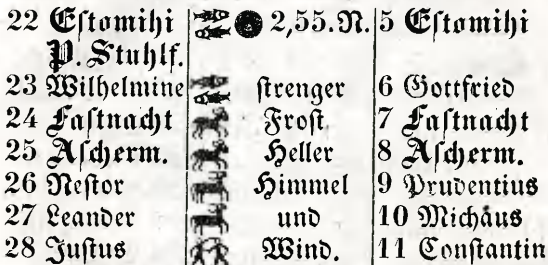 22 Eſtomihi 2,55.N. 5 Eſtomihi
P. Stuhlf.
23 Wilhelmine ſtrenger 6 Gottfried
24 Faſtnacht Froſt, 7 Faſtnacht
25 Aſcherm. Heller 8 Aſcherm.
26 Neſtor Himmel 9 Prudentius
27 Leander und 10 Michäus
28 Juſtus Wind. 11 Conſtantin